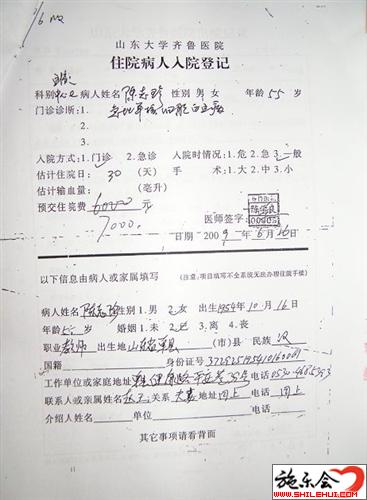 山东大学齐鲁医院
住院病人入院登记
科别 病人姓名 陈志玲 性别 男 女 年龄 55 岁
门诊诊断: 1. 急性单核细胞白血病
2.
3.
入院方式: 1.门诊 2.急诊 入院时情况: 1.危 2.急 3.一般
估计住院日: 30 (天) 手 术: 1.大 2.中 3.小
估计输血量: (毫升)
预交住院费 60000 元
7000. 医师签字:
日期 2009年 6月 16日
以下信息由病人或家属填写 (注意:项目填写不全系统无法办理住院手续)
病人姓名 陈志玲 性别 1.男 2.女 出生 1954年10月16日
年龄 岁 婚姻 1.未 2.已 3.离 4.丧
职业 教师 出生地 山东省单县 (市)县 民族 汉
国籍 身份证号
工作单位或家庭地址 电话
联系人或亲属姓名 关系 夫妻 地址 同上 电话 同上
介绍人姓名 单位 电话
其它事项请看背面
施乐会
WWW.SHILEHUI.COM